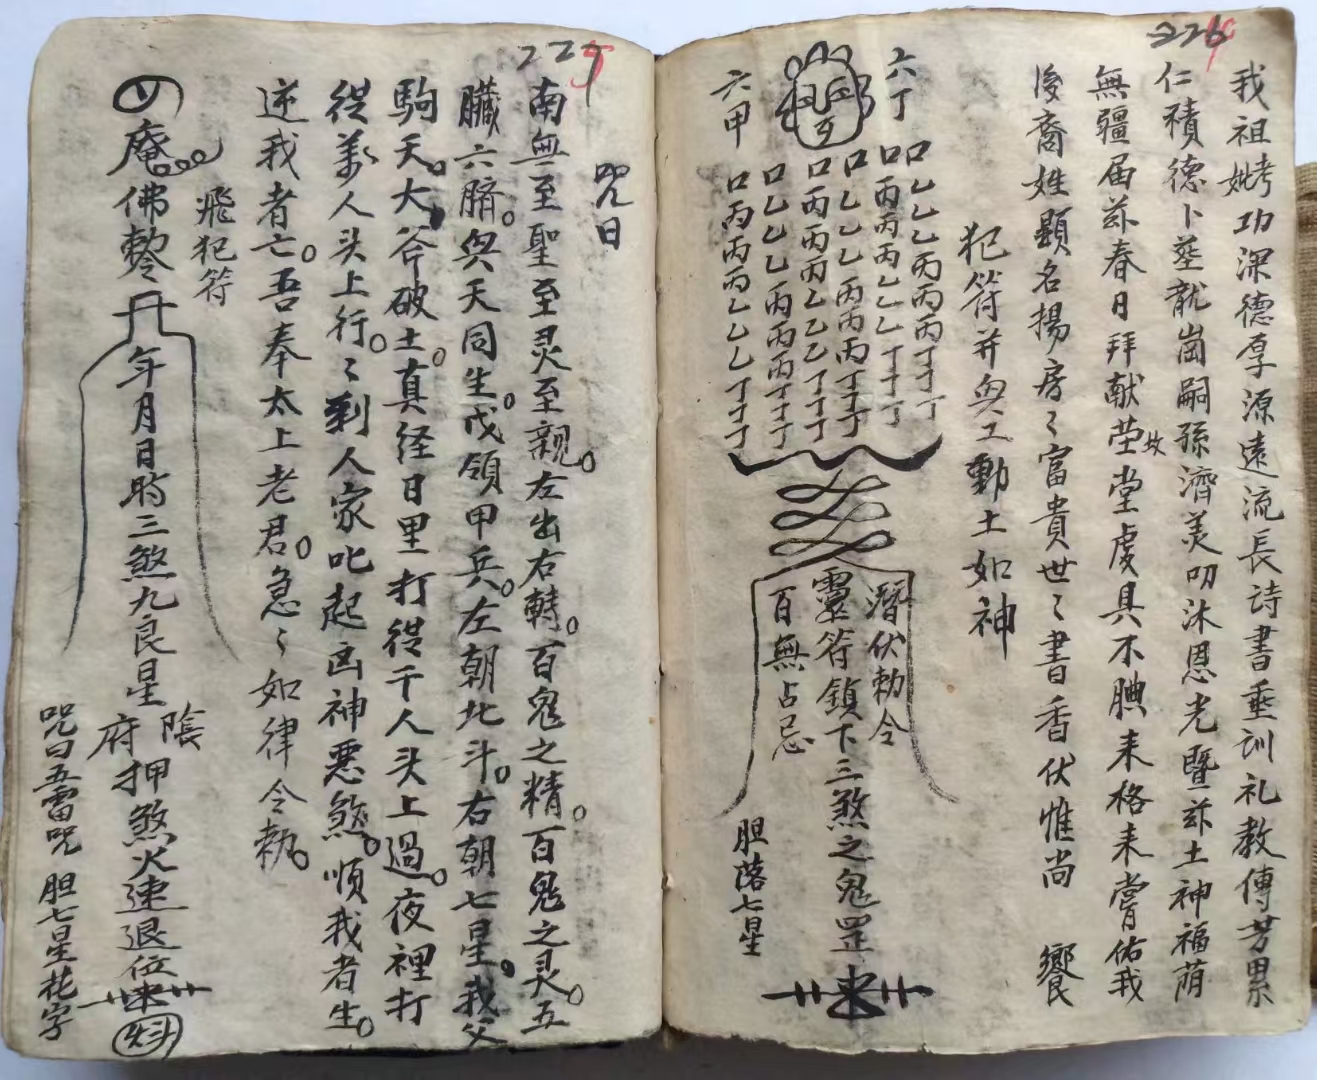 226
我祖妣考功深德厚源遠流長诗書垂训礼教傳芳累
仁積德卜塟龍崗嗣孫濟美叨沐恩光暨兹土神福荫
無疆届兹春日拜献茔堂虔具不腆来格来嘗佑我
坟
後裔姓顯名揚房〻富貴世〻書香伏惟尚 饗
犯符并與工動土如神
六丁
六甲
口乙乙乙丙丙丙丁丁丁
口丙丙丙乙乙乙丁丁丁
口乙乙乙丙丙丙丁丁丁
口丙丙丙乙乙乙丁丁丁
口乙乙乙丙丙丙丁丁丁
口丙丙丙乙乙乙丁丁丁
潛伏勅令
靈符鎮下三煞之鬼罡
百無占忌
胆落七星
227
咒曰
南無至聖至灵至親。左出右轉。百鬼之精。百鬼之灵。五
臟六腑。與天同生。戊領甲兵。左朝北斗。右朝七星。我父
驹天。大斧破土。真经日里打從千人头上過。夜裡打
從萬人头上行。〻到人家叱起凶神悪煞。順我者生。
逆我者亡。吾奉太上老君。急〻如律令執。
飛犯符
庵佛
年月日時三煞九良星
陰府
押煞火速退位
咒曰五雷咒 胆七星花字